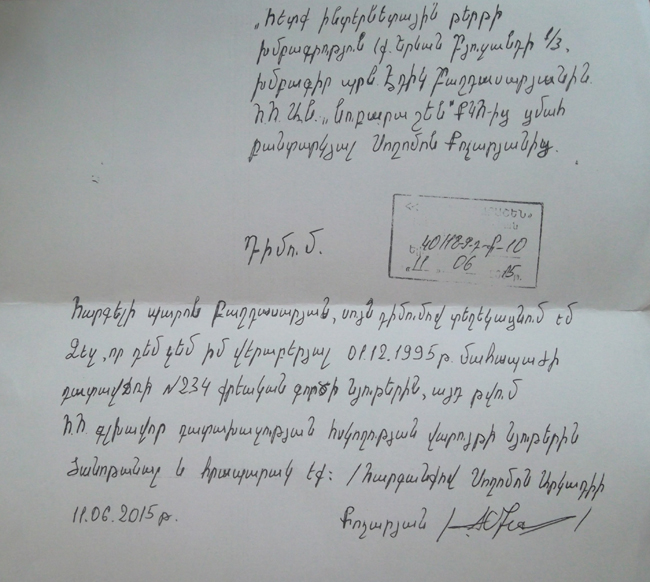 „Հետք ինտերնետային թերթի
խմբագրություն (ք. Երևան Բյուզանդի 1/3,
խմբագիր պրն. Էդիկ Բաղդասարյանին
ՀՀ ԱՆ. „Նուբարաշեն" ՔԿՀ-ից ցմահ
բանտարկյալ Սողոմոն Քոչարյանից.
Դիմում.
ՀՀ ԱՇԵՆ»
11 06 15թ.
Հարգելի պարոն Բաղդասարյան, սույն դիմումով տեղեկացնում եմ
Ձեզ, որ դեմ չեմ իմ վերաբերյալ 01.12.1995թ. մահապատժի
դատավճռի №234 քրեական գործի նյութերին, այդ թվում
ՀՀ գլխավոր դատախազության հսկողության վարույթի նյութերին
ծանոթանալ և հրապարակեք: /Հարգանքով Սողոմոն Արկադիի
11.06.2015թ. Քոչարյան / /